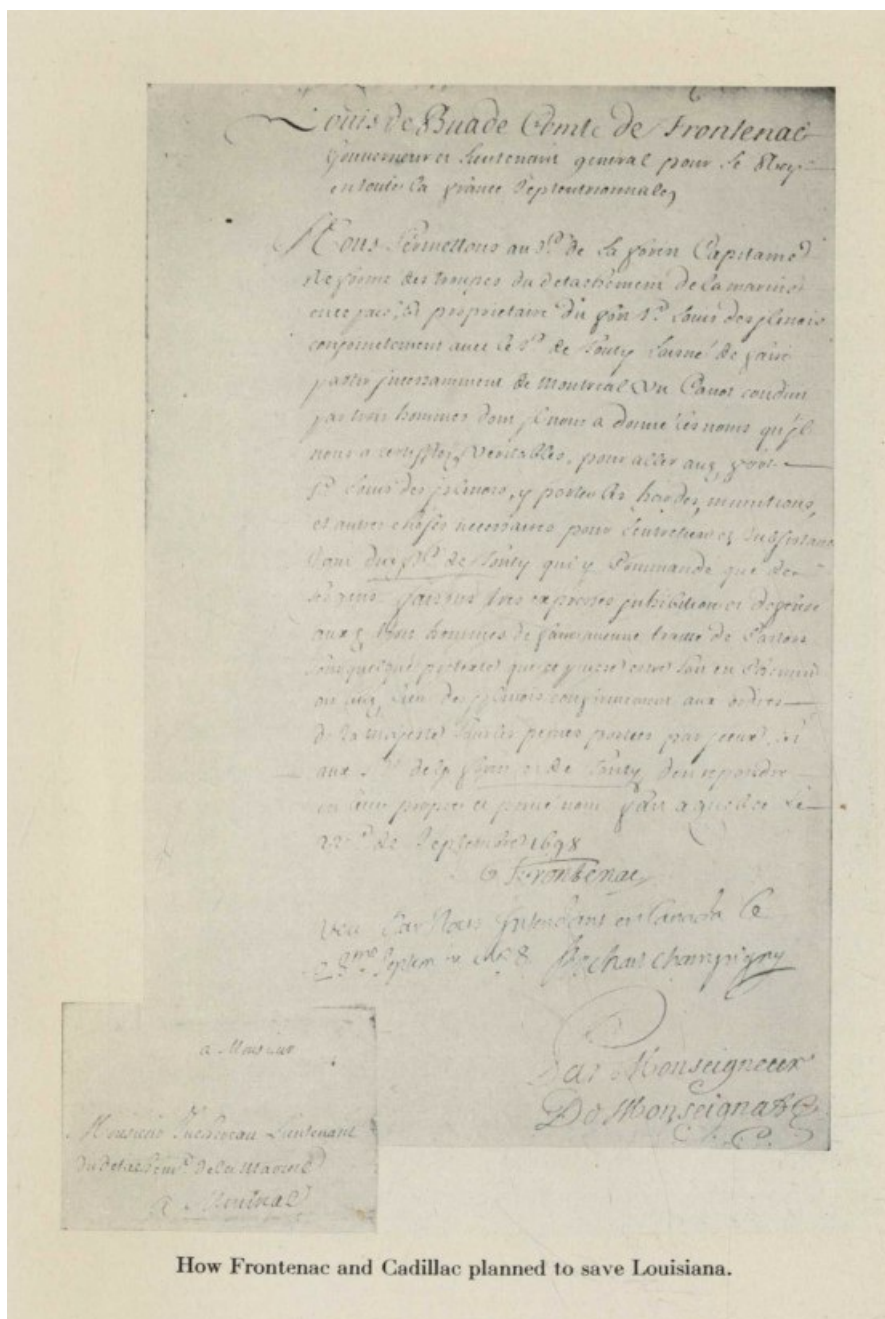 Louis de Buade Comte de Frontenac
Gouverneur et Lieutenant general pour le Roy
en toute la france Septentrionnale,
Nous Permettons au Sr. de la forest Capitaine
Reformé des troupes du detachement de la marine
en ce pais, proprietaire du fort St. Louis des jlinois
conjointement avec le Sr. de Tonty de faire
partir jncessamment de Montreal Un Canot conduit
par trois hommes dont jl nous a donné les noms qu'jl
nous a veritables, pour aller au fort
St. Louis des jlinois, y porter les hardes, munitions,
et autres choses necessaires pour l'entretien et subsistance
Sr. de Tonty qui y Commande que de
ses gens faisons tres expresses jnhibition et deffense
aux trois hommes de faire aucune traitte de Castors
sous quelque pretexte que ce puisse estre soit en Chemin
ou aux jlinois conformement aux ordres
de sa majesté sous les peines portées par jceux, et
aux Srs. de la forest et de Tonty d'en repondre
en leur propre et privé nom fait a quebec le
22e. de Septembre 1698
Frontenac
Veu Par Nous jntendant en Canada le
Septembre 1698 Bochart Champigny
Par Monseigneur
De Monseignat
a Monsieur
Monsieur Lieutenant
du detachemt. de la Marine
A Montreal
How Frontenac and Cadillac planned to save Louisiana.